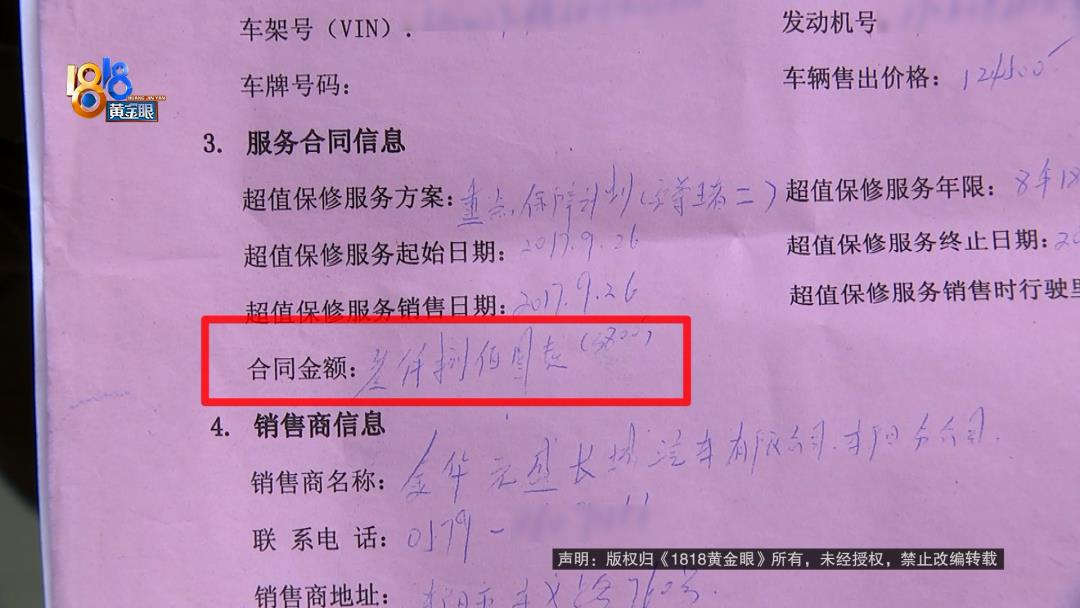 车架号（VIN）.
发动机号
1818
HUANG JIN YAN
黄金眼
车牌号码：
车辆售出价格：124500
3. 服务合同信息
超值保修服务方案：重点保障计划（之尊享二）
超值保修服务年限：8年18
超值保修服务起始日期：2017.9.26
超值保修服务终止日期：20
超值保修服务销售日期：2017.9.26
超值保修服务销售时行驶里
合同金额：叁仟捌佰圆整（3800）
4. 销售商信息
销售商名称：金华元盛长城汽车有限公司东阳分公司.
联系电话：0579-
声明：版权归《1818黄金眼》所有，未经授权，禁止改编转载
销售商地址：